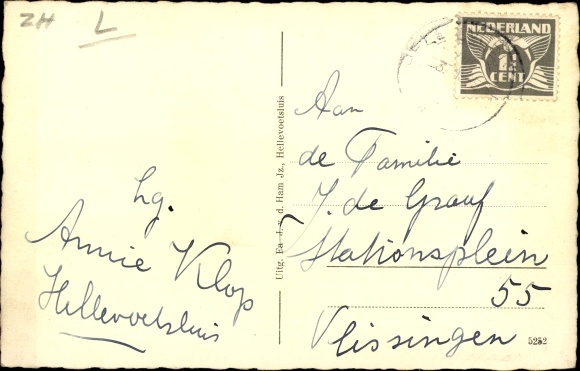 ZH L
NEDERLAND
1½
CENT
hg.
Annie Klop
Hellevoetsluis
Uitg. Fa. J. v. d. Ham Jz., Hellevoetsluis
Aan
de Familie
J. de Graaf
Stationsplein
55
Vlissingen
5252